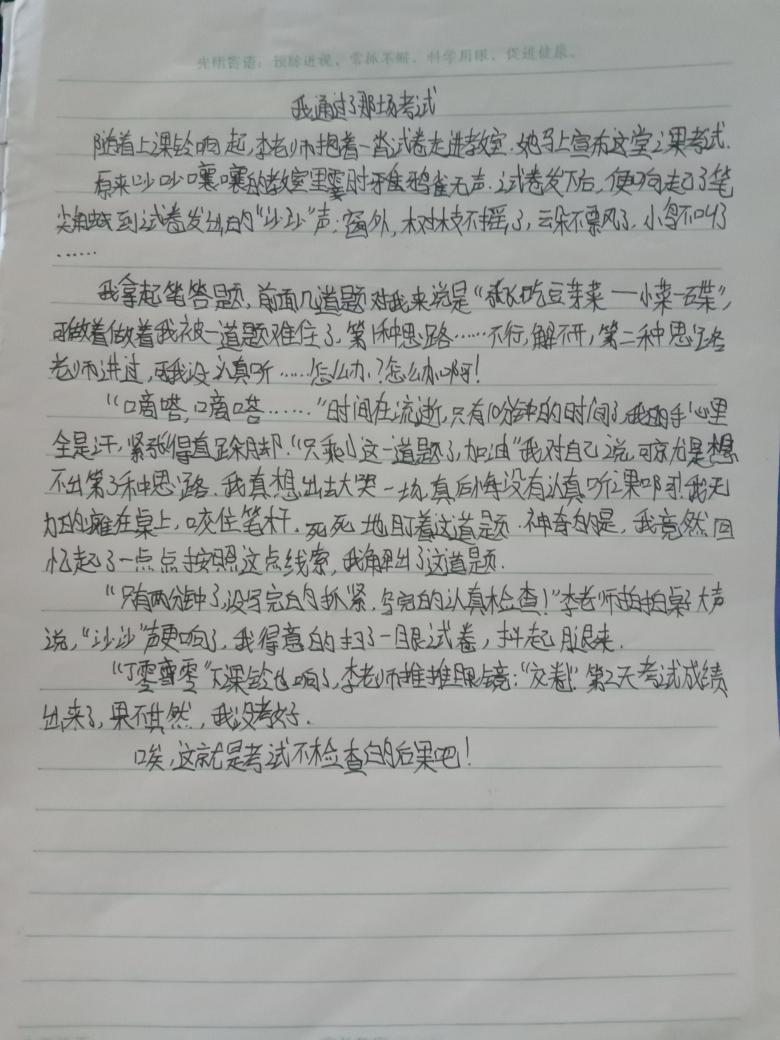 光明寄语：预防近视、常抓不懈、科学用眼、促进健康。
我通过了那场考试
随着上课铃响起,李老师抱着一沓试卷走进教室.她马上宣布这堂课考试.
原来吵吵嚷嚷的教室里霎时雅鸦雀无声.试卷发下后,便响起了笔
尖触到试卷发出的“沙沙”声;窗外,树枝不摇了,云朵不飘风了,小鸟不叫了
……
我拿起笔答题,前面几道题对我来说是“张飞吃豆芽菜——小菜一碟”,
可做着做着我被一道题难住了,第1种思路……不行,解不开,第二种思路
老师讲过,可我没认真听……怎么办?怎么办啊!
“嘀嗒,嘀嗒……”时间在流逝,只有10分钟的时间了,我的手心里
全是汗,紧张得直跺脚.“只剩这一道题了,加油”我对自己说,可就是想
不出第3种思路.我真想出去大哭一场,真后悔没有认真听课啊!我无
力的瘫在桌上,咬住笔杆.死死地盯着这道题.神奇的是,我竟然回
忆起了一点点按照这点线索,我解出了这道题.
“只有两分钟了,没写完的抓紧.写完的认真检查!”李老师拍拍桌子大声
说,“沙沙”声更响了,我得意的扫了一眼试卷,抖起腿来.
“丁零零零”下课铃也响了,李老师推推眼镜:“交卷!”第2天考试成绩
出来了,果不其然,我没考好.
唉,这就是考试不检查的后果吧!